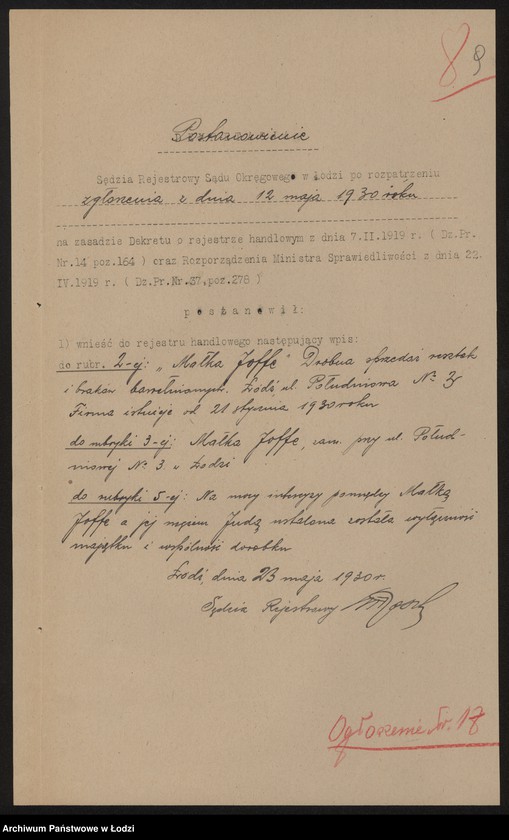 8 9
Postanowienie
Sędzia Rejestrowy Sądu Okręgowego w Łodzi po rozpatrzeniu
zgłoszenia z dnia 12 maja 1930 roku
na zasadzie Dekretu o rejestrze handlowym z dnia 7.II.1919 r. ( Dz.Pr.
Nr.14 poz.164 ) oraz Rozporządzenia Ministra Sprawiedliwości z dnia 22.
IV.1919 r. ( Dz.Pr.Nr.37,poz.278 )
p o s t a n o w i ł :
1) wnieść do rejestru handlowego następujący wpis:
do rubr. 2-ej: „Małka Joffe" Drobna sprzedaż resztek
i braków bawełnianych. Łódź, ul. Południowa № 3
Firma istnieje od 21 stycznia 1930 roku
do rubryki 3-ej: Małka Joffe, zam. przy ul. Połud-
niowej № 3. w Łodzi
do rubryki 5-ej: Na mocy intercyzy pomiędzy Małką
Joffe a jej mężem Judą ustalona została wyłączność
majątku i wspólność dorobku
Łódź, dnia 23 maja 1930 r.
Sędzia Rejestrowy
Ogłoszenie Nr. 17
Archiwum Państwowe w Łodzi